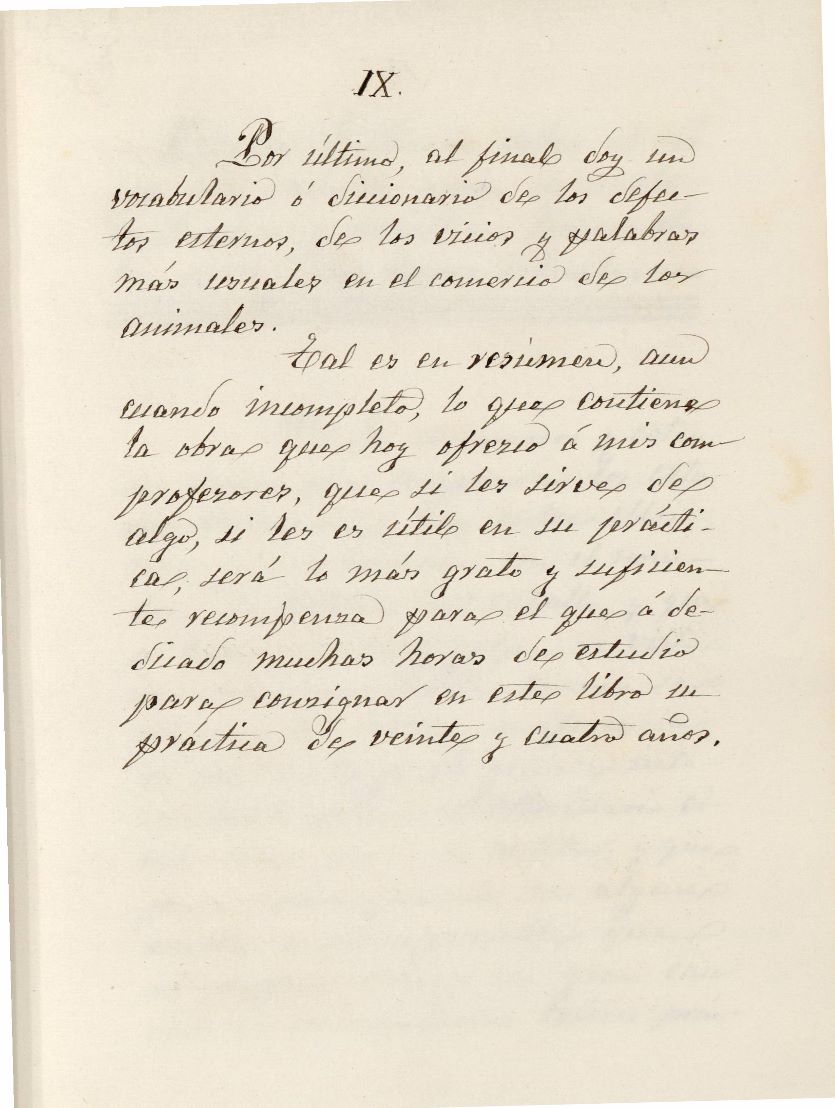 IX.
Por último, al final doy un
vocabulario ó diccionario de los defec-
tos esternos, de los vicios y palabras
más usuales en el comercio de los
animales.
Tal es en resúmen, aun
cuando incompleto, lo que contiene
la obra que hoy ofrezco á mis com-
profesores, que si les sirve de
algo, si les es útil en su prácti-
ca, será lo más grato y suficien-
te recompensa para el que á de-
dicado muchas horas de estudio
para consignar en este libro su
práctica de veinte y cuatro años.